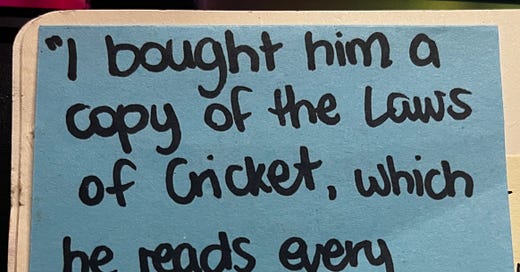 "I bought him a
copy of the Laws
of Cricket, which
he reads every